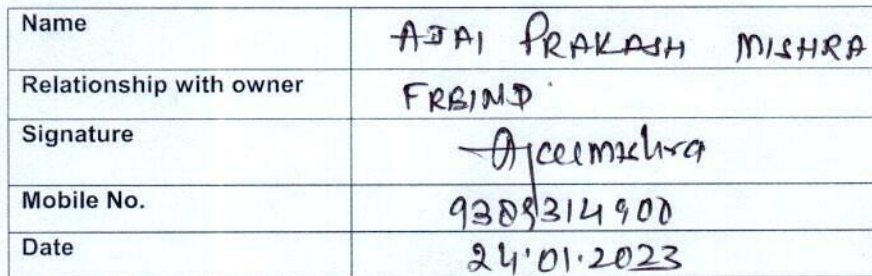 Name AJAI PRAKASH MISHRA
Relationship with owner FREIND
Signature Ajaimishra
Mobile No. 9305314900
Date 24.01.2023